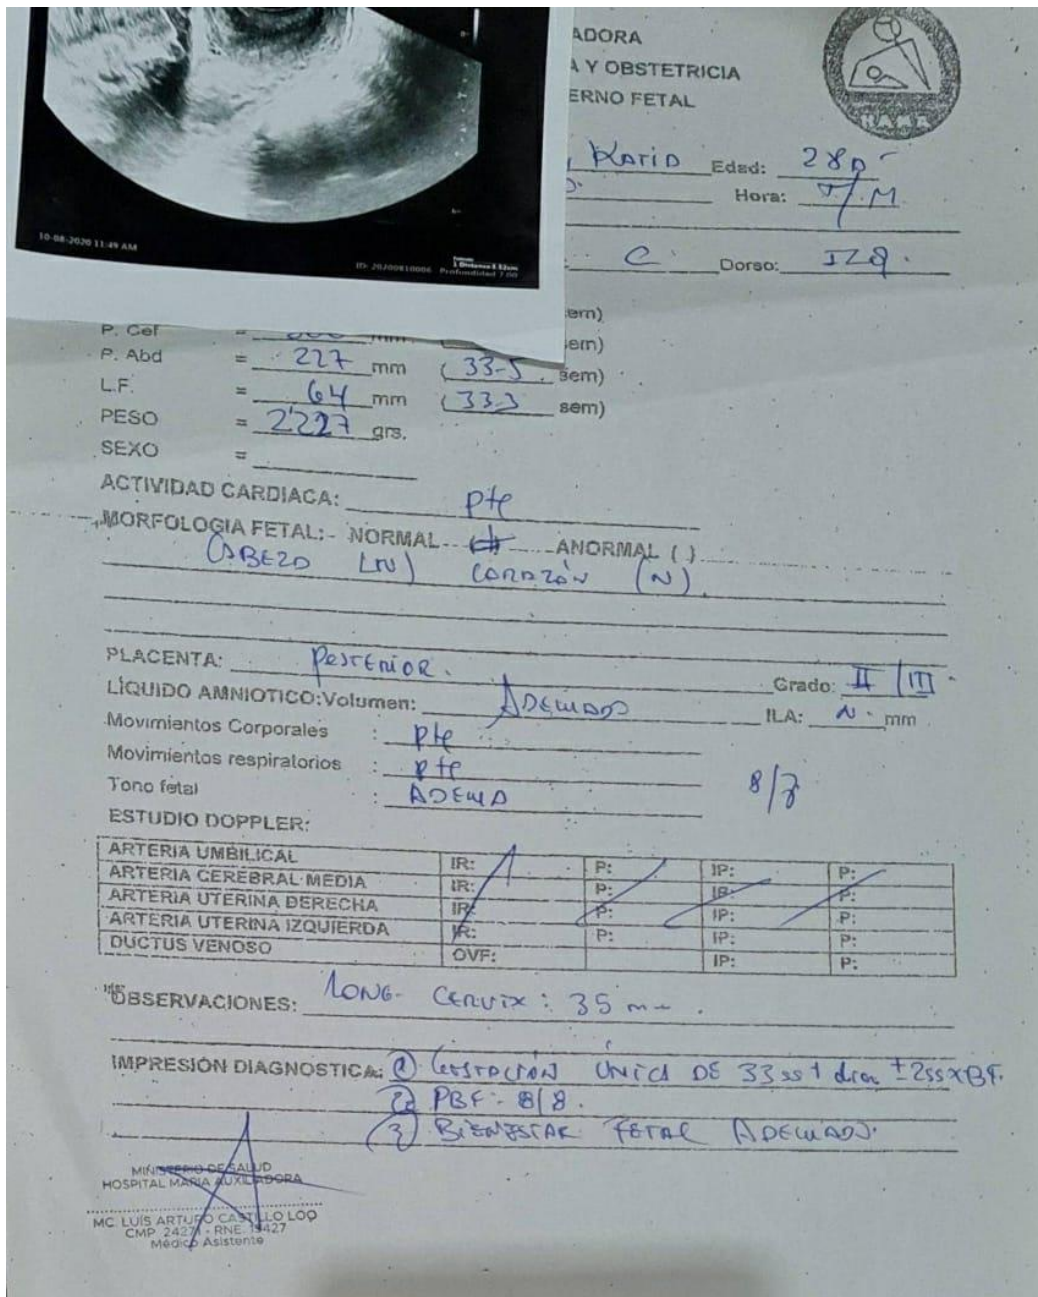 ADORA
A Y OBSTETRICIA
ERNO FETAL
HAMA
, Katia Edad: 28a
Hora: T/M
C. Dorso: IZQ.
10-08-2020 11:49 AM
1 Distance 3.52cm
ID: 20200810006 Profundidad 7.00
em)
P. Cef = mm em)
P. Abd = 227 mm (33-5. sem)
L.F. = 64 mm (33.3 sem)
PESO = 2227 grs.
SEXO =
ACTIVIDAD CARDIACA: pte
MORFOLOGIA FETAL:- NORMAL ANORMAL ( )
CABEZA (N) CORAZÓN (N)
PLACENTA: Posterior. Grado: II/III
LÍQUIDO AMNIOTICO:Volumen: Adecuado ILA: N. mm
Movimientos Corporales : pte
Movimientos respiratorios : pte
Tono fetal : ADECUA 8/8
ESTUDIO DOPPLER:
ARTERIA UMBILICAL IR: P: IP: P:
ARTERIA CEREBRAL MEDIA IR: P: IP: P:
ARTERIA UTERINA DERECHA IR: P: IP: P:
ARTERIA UTERINA IZQUIERDA IR: P: IP: P:
DUCTUS VENOSO OVF: IP: P:
OBSERVACIONES: LONG. CERVIX: 35 mm.
IMPRESIÓN DIAGNOSTICA: ① GESTACIÓN ÚNICA DE 33ss 1 dia ±2ss x BF.
② PBF: 8/8.
③ BIENESTAR FETAL ADECUADO.
MINISTERIO DE SALUD
HOSPITAL MARIA AUXILIADORA
MC. LUIS ARTURO CASTILLO LOO
CMP. 24271 - RNE.
Médico Asistente